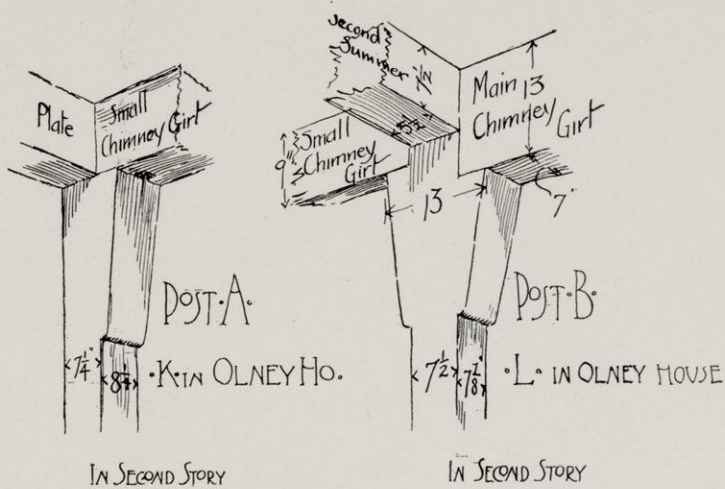 Plate
Small
Chimney Girt
Post·A·
7 1/4"
8 1/4
·K·in Olney Ho.
In Second Story
Second
Summer
Small
Chimney
Girt
9"
5 1/2
Main
Chimney
Girt
13
7"
13
Post·B·
7 1/2
7 7/8"
·L· in Olney House
In Second Story